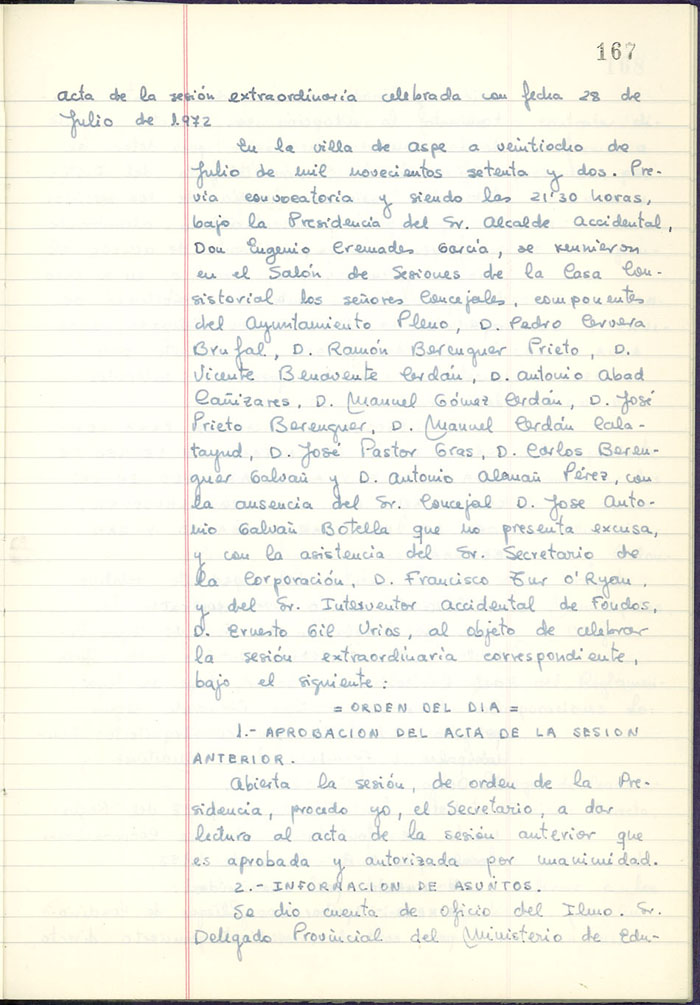 167
acta de la sesión extraordinaria celebrada con fecha 28 de
Julio de 1.972
En la villa de aspe a veintiocho de
Julio de mil novecientos setenta y dos. Pre-
via convocatoria y siendo las 21'30 horas,
bajo la Presidencia del Sr. Alcalde Accidental,
Don Eugenio Cremades García, se reunieron
en el Salón de Sesiones de la Casa Con-
sistorial los señores Concejales, componentes
del Ayuntamiento Pleno, D. Pedro Cervera
Brufal, D. Ramón Berenguer Prieto, D.
Vicente Benavente Cerdán, D. Antonio Abad
Cañizares, D. Manuel Gómez Cerdán, D. José
Prieto Berenguer, D. Manuel Cerdán Cala-
tayud, D. José Pastor Gras, D. Carlos Beren-
guer Galvañ y D. Antonio Alemañ Pérez, con
la ausencia del Sr. Concejal D. Jose Anto-
nio Galvañ Botella que no presenta excusa,
y con la asistencia del Sr. Secretario de
la Corporación, D. Francisco Tur O'Ryan,
y del Sr. Interventor accidental de Fondos,
D. Ernesto Gil Urios, al objeto de celebrar
la sesión extraordinaria correspondiente,
bajo el siguiente:
= ORDEN DEL DIA =
1.- APROBACION DEL ACTA DE LA SESION
ANTERIOR.
Abierta la sesión, de orden de la Pre-
sidencia, procedo yo, el Secretario, a dar
lectura al acta de la sesión anterior que
es aprobada y autorizada por unanimidad.
2.- INFORMACION DE ASUNTOS.
Se dio cuenta de oficio del Ilmo. Sr.
Delegado Provincial del Ministerio de Edu-